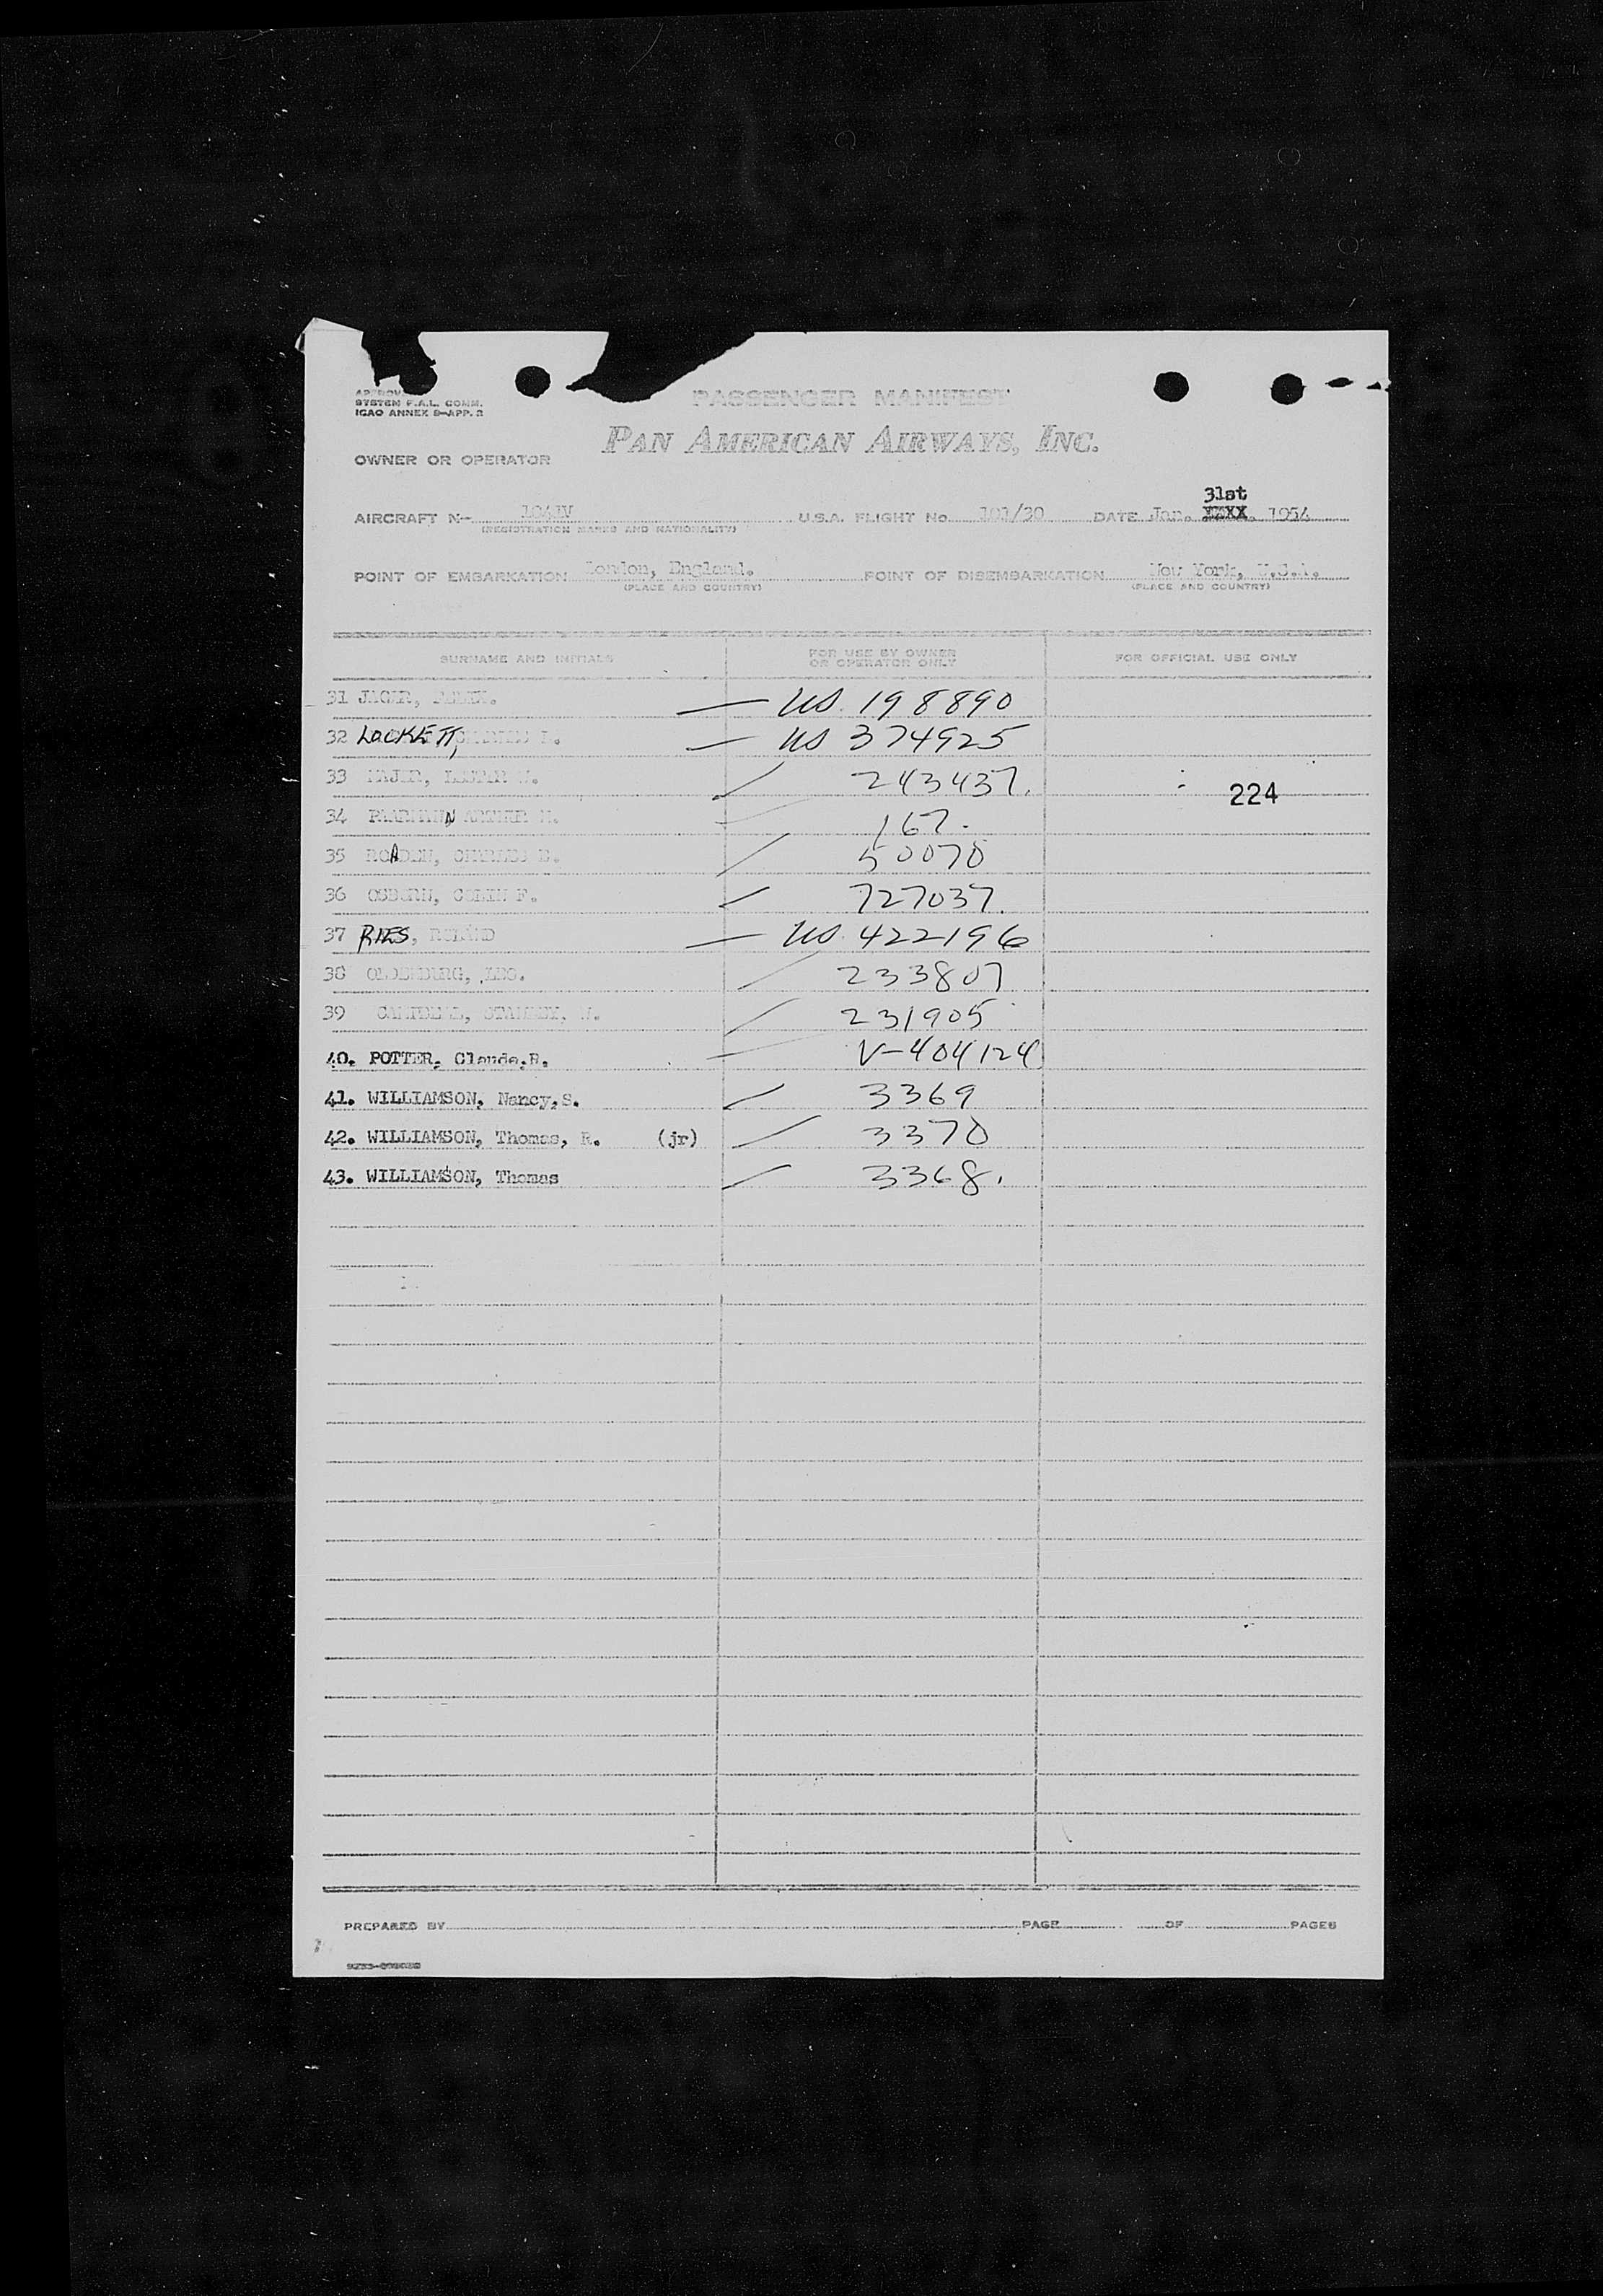 SYSTEM F.A.L. COMM.
ICAO ANNEX 9-APP. 2
PASSENGER MANIFEST
PAN AMERICAN AIRWAYS, INC.
OWNER OR OPERATOR
31st
AIRCRAFT N- 1041V U.S.A. FLIGHT No. 101/30 DATE Jan. XXXX, 1954
(REGISTRATION MARKS AND NATIONALITY)
POINT OF EMBARKATION London, England. POINT OF DISEMBARKATION New York, U.S.A.
(PLACE AND COUNTRY) (PLACE AND COUNTRY)
SURNAME AND INITIALS FOR USE BY OWNER OR OPERATOR ONLY FOR OFFICIAL USE ONLY
31 JAGER, — US. 198890
32 LOCKETT, CHARLES — US 374925
33 243437. 224
34 167.
35 ROADEN, CHARLES E. 50070
36 OSBORN, COLIN F. 727037.
37 RIES, ROLAND — US. 422196
38 OLDENBURG, LEO. 233807
39 CAMPBELL, STANLEY, W. 231905
40. POTTER, Claude,R. V-404124
41. WILLIAMSON, Nancy,S. 3369
42. WILLIAMSON, Thomas, R. (jr) 3370
43. WILLIAMSON, Thomas 3368.
PREPARED BY PAGE OF PAGES